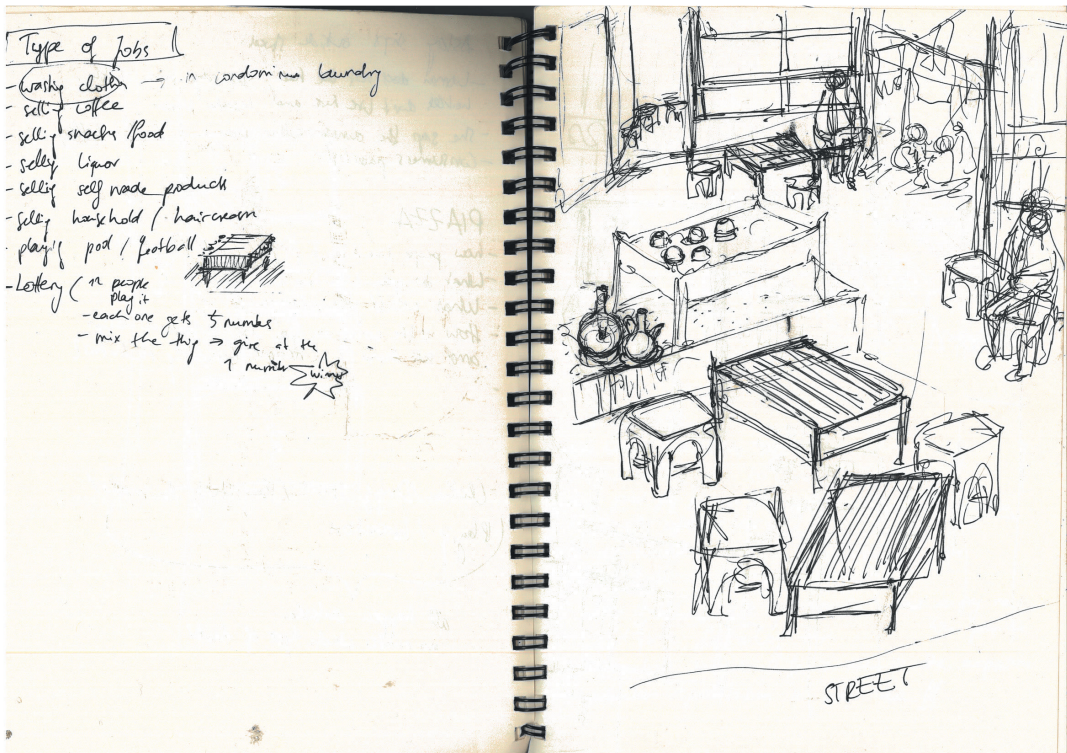 Type of Jobs
- washing clothes → in condominium laundry
- selling coffee
- selling snacks / food
- selling liquor
- selling self made products
- selling household / haircream
- playing pool / football
- Lottery ( 12 people
play it
- each one gets 5 number
- mix the thing → give at the
1 number winner
STREET